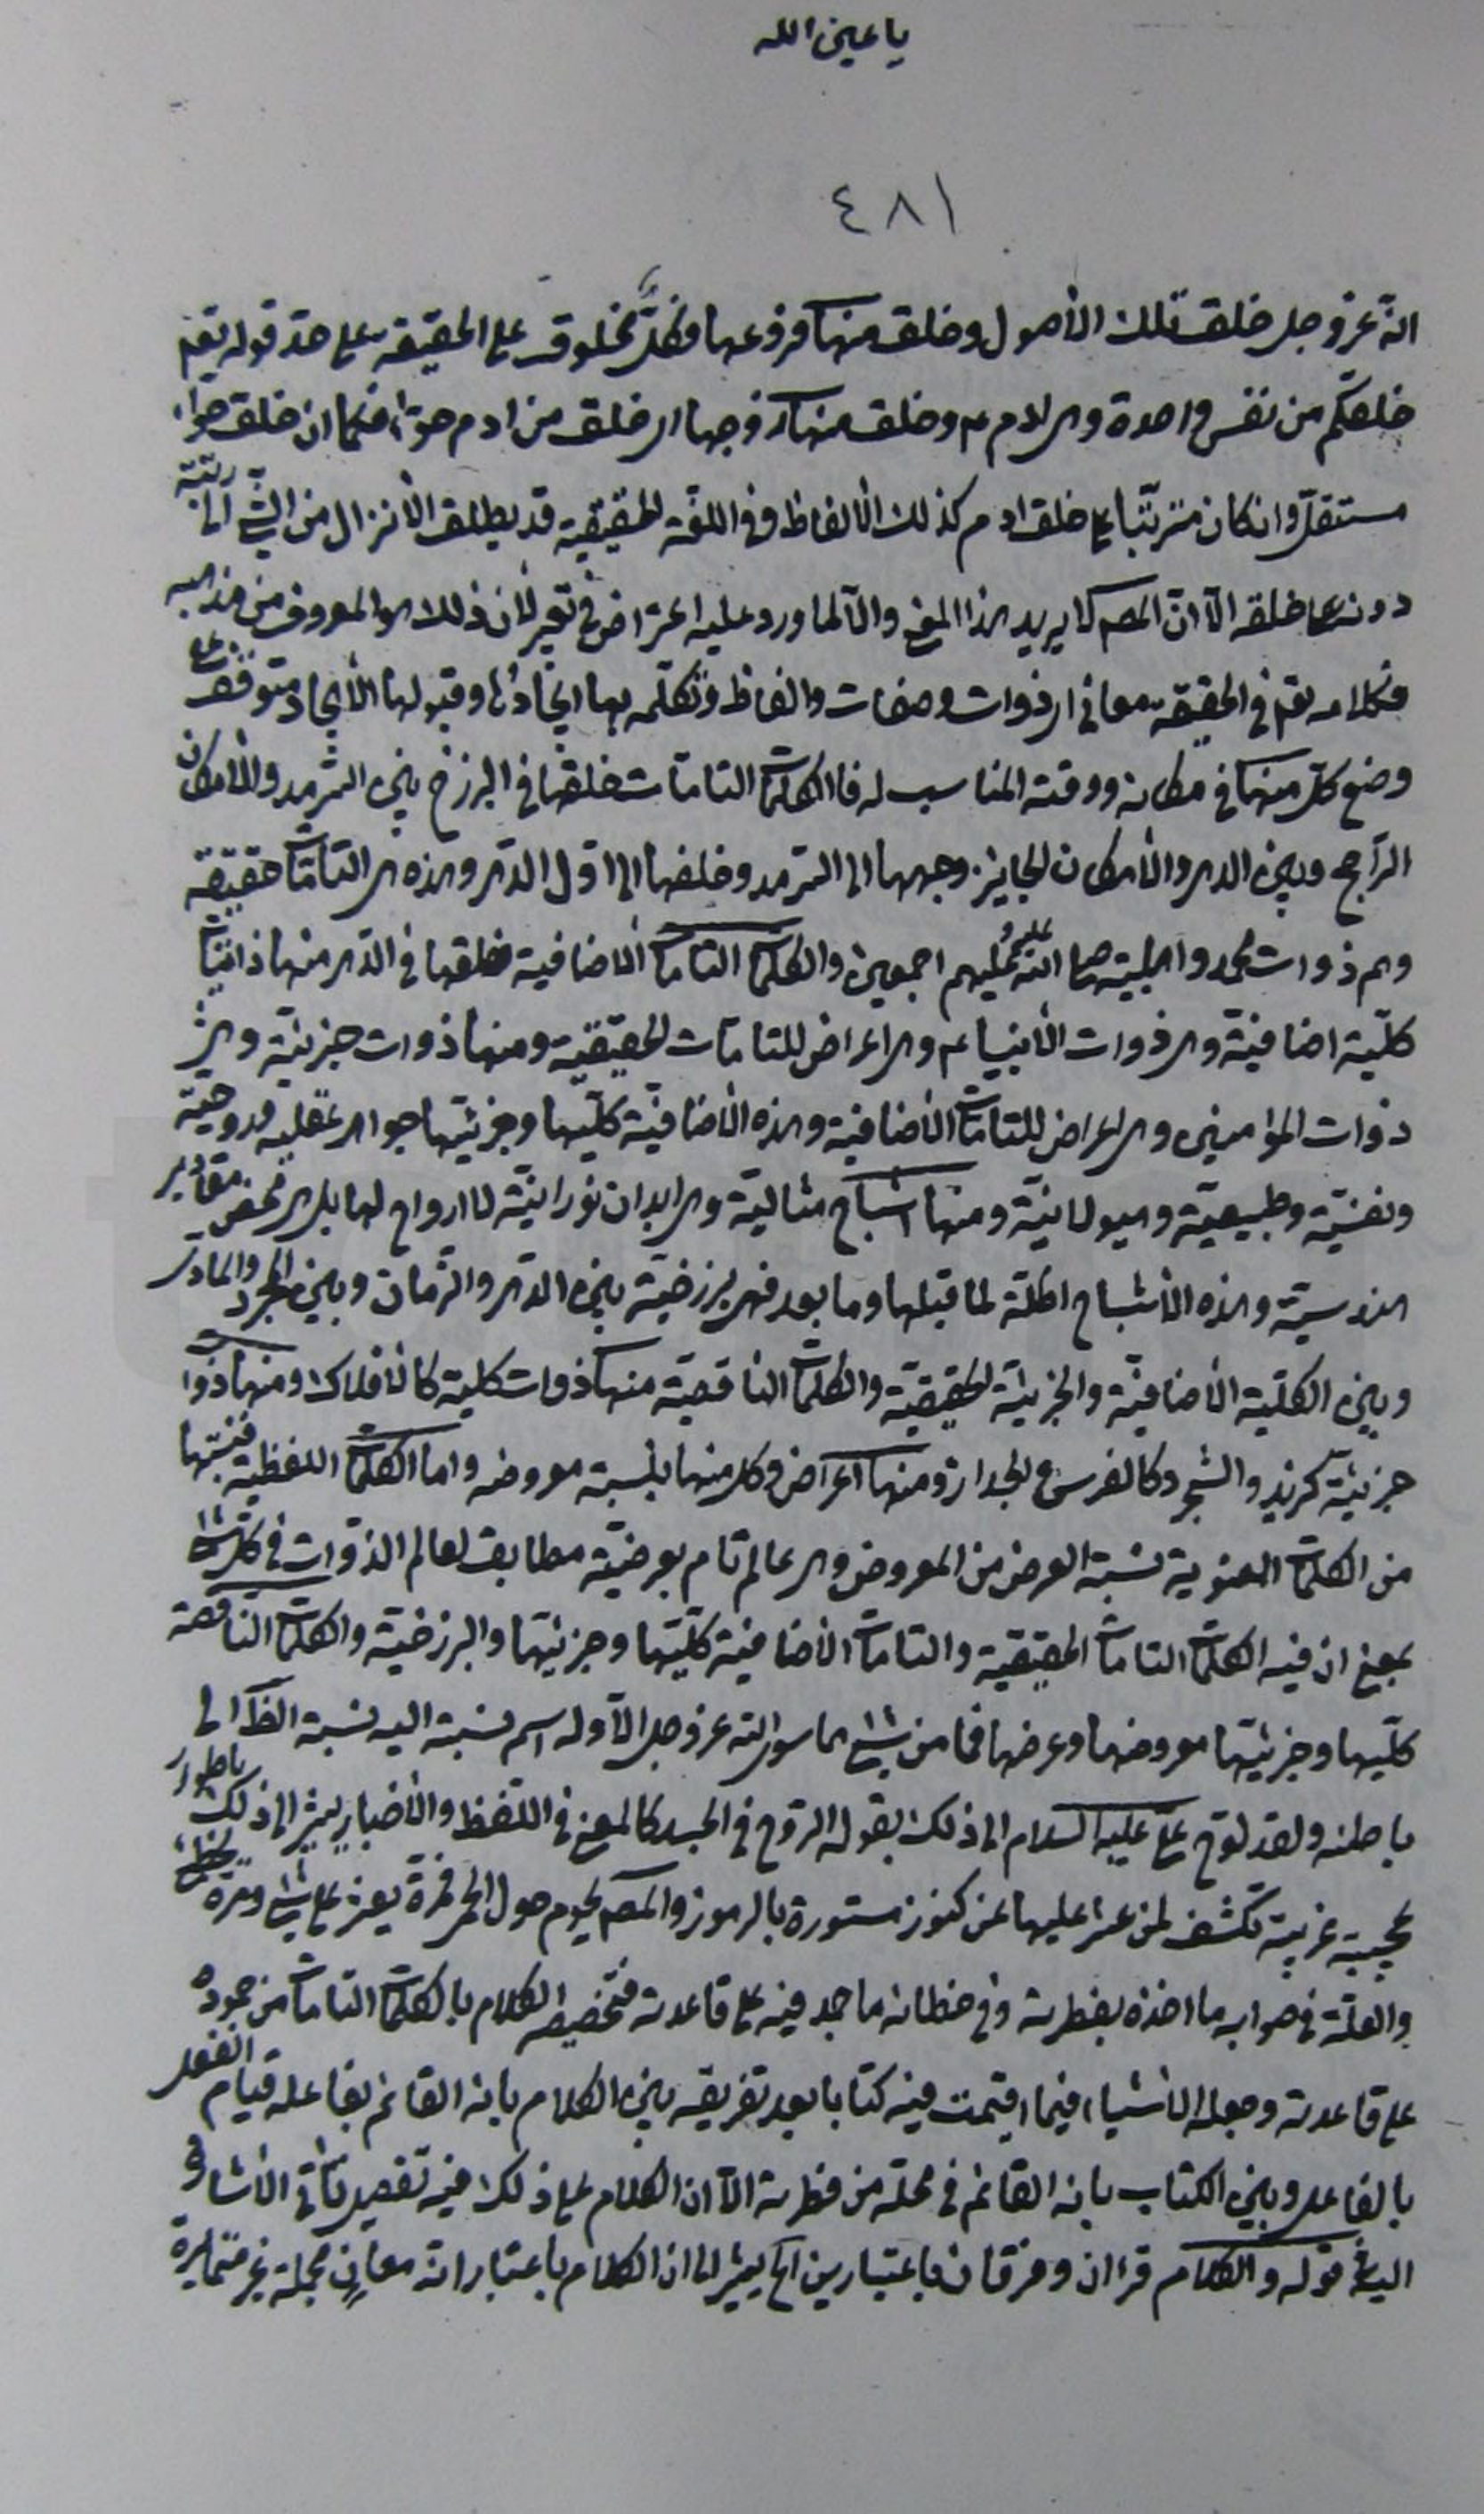 يا عين الله
٤٨١
انه عز وجل خلق تلك الأصول وخلق منها فروعها فكلٌّ مخلوق على الحقيقة على حد قوله تعم
خلقكم من نفس واحدة وهي ادم ع وخلق منها زوجها اي خلق من ادم حوّاء فكما ان خلق حواء
مستقلّ وان كان مترتّبا على خلق ادم كذلك الألفاظ وفي اللغة الحقيقية قد يطلق الأنزال من الشئ الى رتبة
دونه على خلقه الّا انّ المصـ لا يريد هذا المعنى والّا لما ورد عليه اعتراض في تعبير لان ذلك هو المعروف من مذهبه
فكلامه تعم في الحقيقة معاني اي ذوات وصفات والفاظ وتكلّمه بها ايجادُها وقبولها الأيجاد متوقف على
وضع كل منها في مكانه ووقته المناسب له فالكلمات التامّات خلقها في البرزخ بين السّرمد والأمكان
الراجح وبين الدهر والأمكان الجايز وجهها الى السرمد وخلفها الى اوّل الدّهر وهذه هي التامّات حقيقة
وهم ذوات محمد واهل بيته صلى الله عليه وعليهم اجمعين والكلمات التامات الأضافية خلقها في الدّهر منها ذاتيّات
كلّية اضافيّة وهي ذوات الأنبياء ع وهي اعراض للتامّات الحقيقيّة ومنها ذوات جزئيّة وهي
ذوات المؤمنين وهي اعراض للتامّات الأضافية وهذه الأضافيّة كلّيها وجزئيّها جواهر عقلية وروحيّة
ونفسيّة وطبيعيّة وهيولانيّة ومنها اشباح مثاليّة وهي ابدان نورانيّة لا ارواح لها بل هي محض مقادير
هندسيّة وهذه الأشباح اظلّة لما قبلها وما بعد فهي برزخيّة بين الدّهر والزّمان وبين المجرد والمادي
وبين الكلّية الأضافيّة والجزئية الحقيقيّة والكلمات الناقصة منها ذوات كلية كالأفلاك ومنها ذوات
جزئيّة كزيد والشجر وكالفرس والجدار ومنها اعراض وكل منها بنسبة معروضه واما الكلمات اللفظية فنسبتها
من الكلمات المعنوية نسبة العرض من المعروض وهي عالم تام بعرضيّة مطابق لعالم الذّوات في كل شئ
بمعنى ان فيه الكلمات التامات الحقيقية والتامات الأضافيّة كلّيّها وجزئيّها والبرزخيّة والكلمات الناقصة
كلّيها وجزئيّها معروضها وعرضها فما من شئ مما سوى الله عز وجل الّا وله اسم نسبته اليه نسبة الظّ الى
باطنه ولقد لوّح علي عليه السلام الى ذلك بقوله الروح في الجسد كالمعنى في اللفظ والأخبار يشير الى ذلك باطوار
عجيبة غريبة تكشف لمن عثر عليها عن كنوز مستورة بالرموز والمصـ يحوم حول الحمى فمرة يعثر على شئ ومرة يخطئ
والعلّة في صوابه ما اخذه بفطرته وفي خطائه ما جمد فيه على قاعدته فتخصيصه الكلام بالكلمات التامات من جموده
على قاعدته وجعله الأشياء فيما اقيمت فيه كتابا بعد تفريقه بين الكلام بانه القائم بفاعله قيام الفعل
بالفاعل وبين الكتاب بانه القائم في محلّه من فطرته الّا ان الكلام على ذلك فيه تفصيل يأتي الأشارة
اليه قوله والكلام قرءان وفرقان باعتبارين الخ يشير الى ان الكلام باعتبار انه معانٍ مجملة غير متمايزة